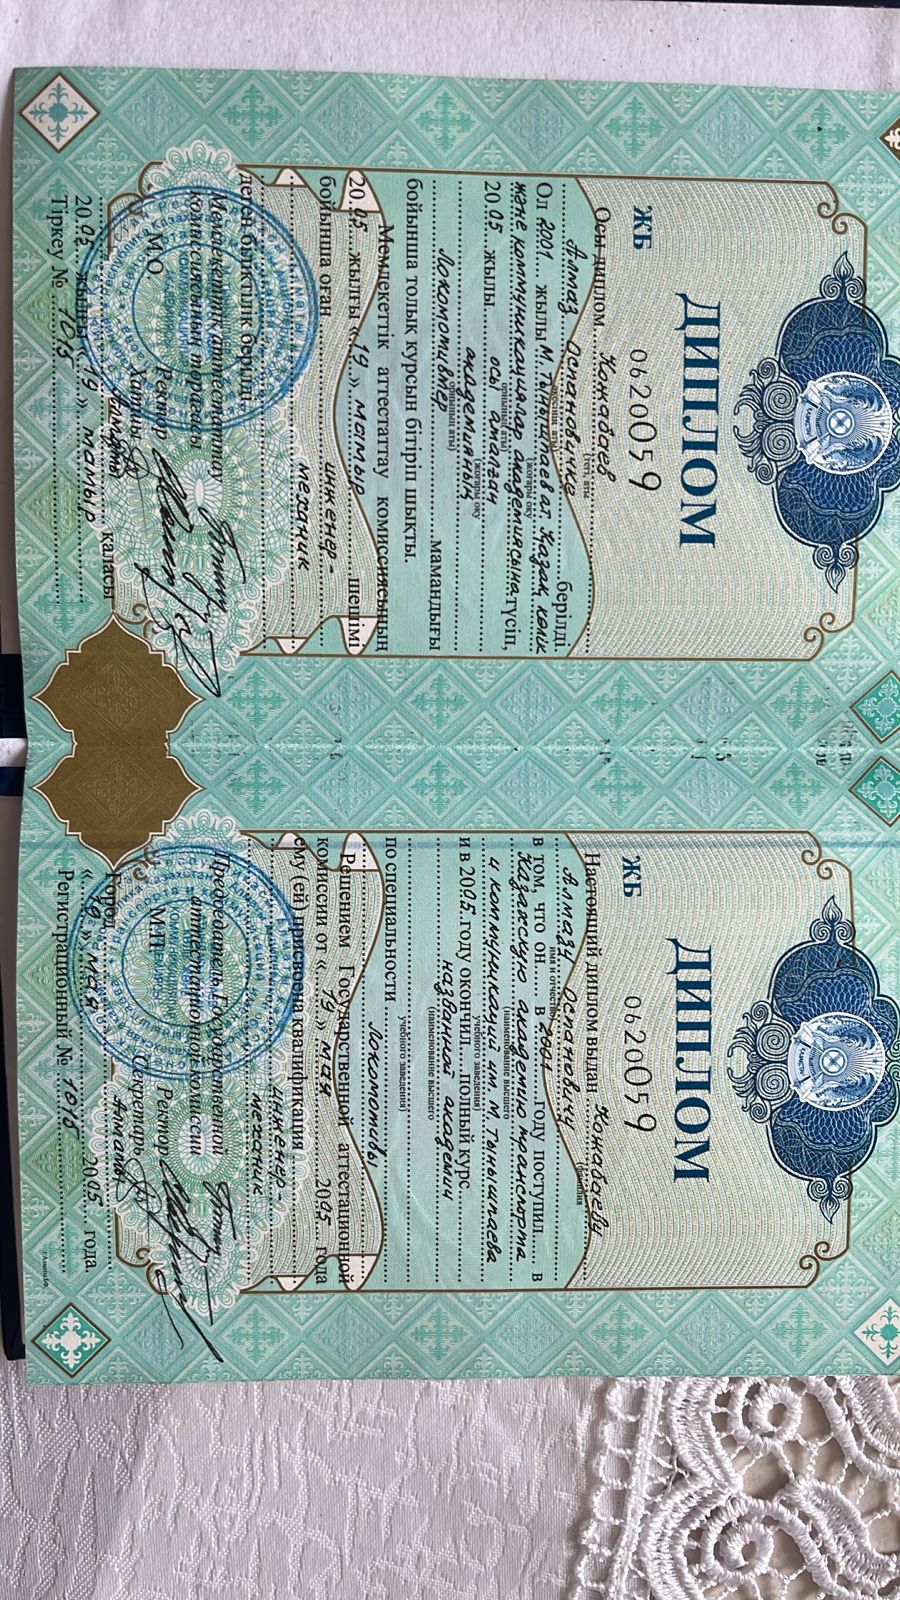 ДИПЛОМ
ЖБ 0620059
Осы диплом Конакбаев
(тегі, аты
Алмаз Оспановичке берілді.
Ол 2001 жылы М. Тынышпаев ат. Қазақ көлік
(жоғары оқу
және коммуникациялар академиясына түсіп,
орнының аты)
2005 жылы осы аталған
(жоғары оқу
академияның
орнының аты)
Локомотивтер мамандығы
бойынша толық курсын бітіріп шықты.
Мемлекеттік аттестаттау комиссиясының
2005 жылғы «19» мамыр шешімі
бойынша оған инженер-
механик
деген біліктілік берілді.
Мемлекеттік аттестаттау
комиссиясының төрағасы
М.О. Ректор
Хатшы
Алматы қаласы
2005 жылғы «19» мамыр
Тіркеу № 1015
ДИПЛОМ
ЖБ 0620059
Настоящий диплом выдан Конакбаеву
(фамилия
Алмазу Оспановичу
имя и отчество)
в том, что он в 2001 году поступил в
Казахскую академию транспорта
(наименование высшего
и коммуникаций им. М. Тынышпаева
учебного заведения)
и в 2005 году окончил полный курс
названной академии
(наименование высшего
учебного заведения)
по специальности локомотивы
Решением Государственной аттестационной
комиссии от «19» мая 2005 года
ему (ей) присвоена квалификация
инженер-
механик
Председатель Государственной
аттестационной комиссии
М.П. Ректор
Секретарь
Город Алматы
«19» мая 2005 года.
Регистрационный № 1015